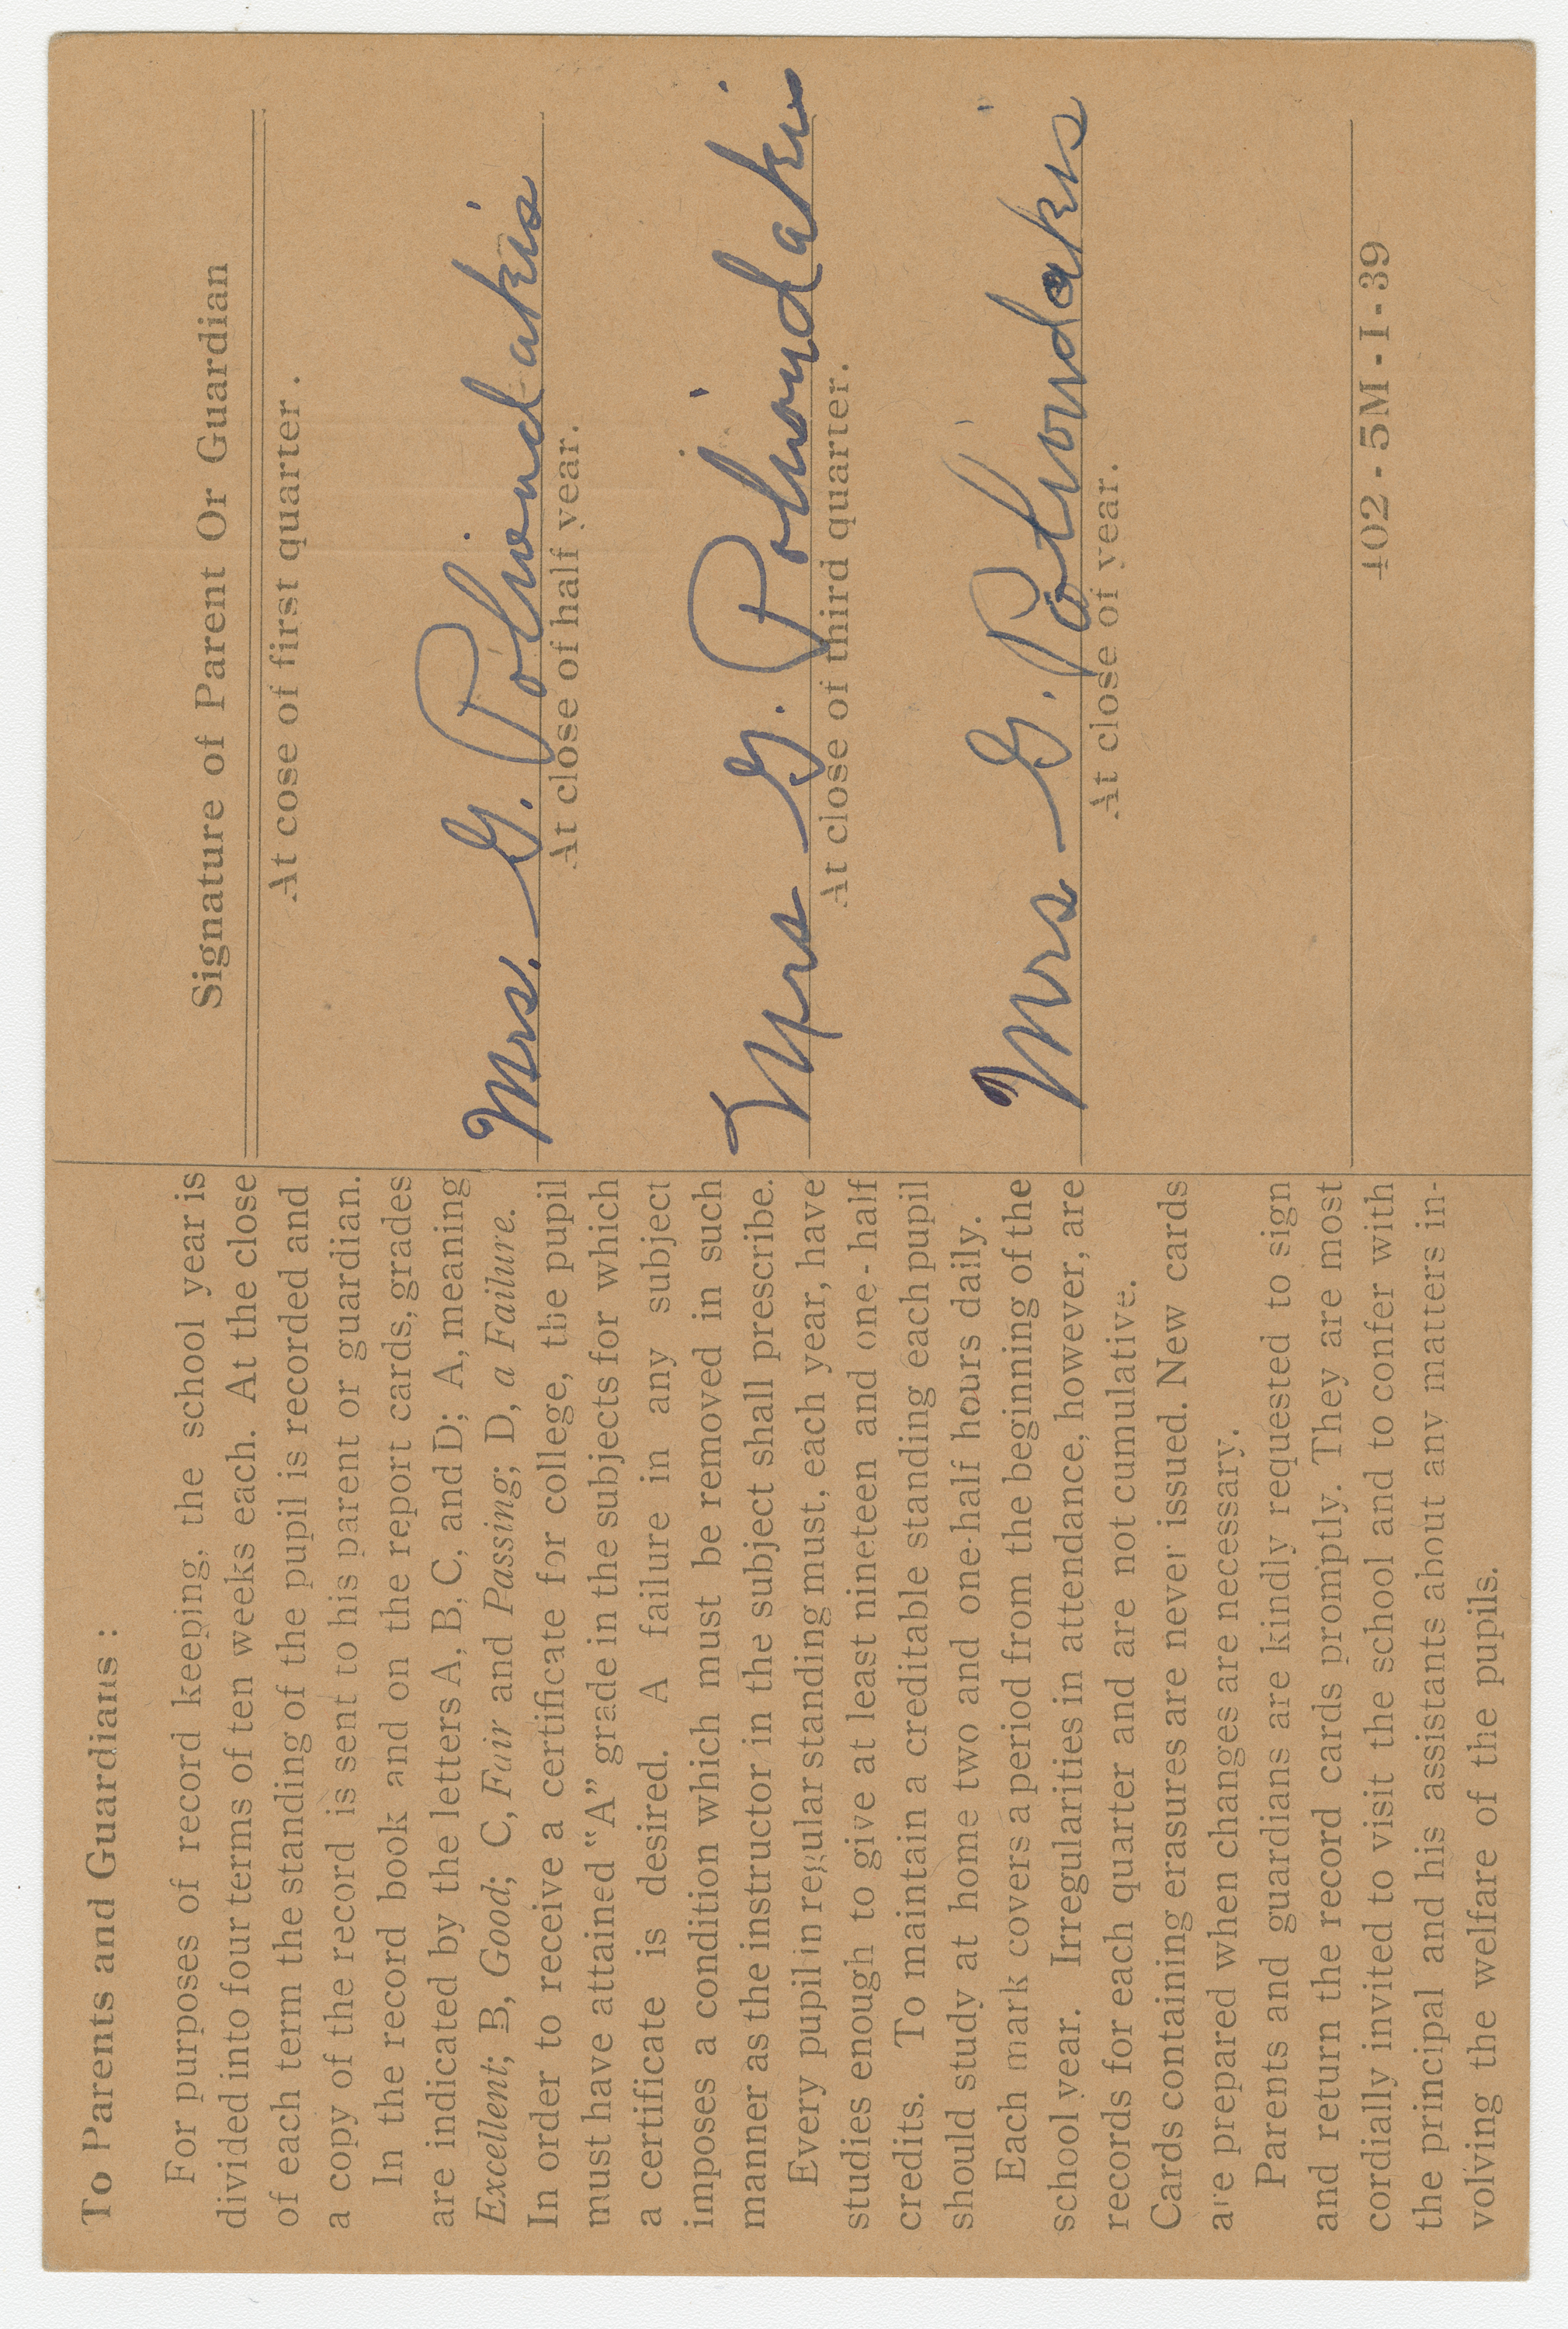 To Parents and Guardians :
For purposes of record keeping, the school year is
divided into four terms of ten weeks each. At the close
of each term the standing of the pupil is recorded and
a copy of the record is sent to his parent or guardian.
In the record book and on the report cards, grades
are indicated by the letters A, B, C, and D; A, meaning
Excellent; B, Good; C, Fair and Passing; D, a Failure.
In order to receive a certificate for college, the pupil
must have attained "A" grade in the subjects for which
a certificate is desired. A failure in any subject
imposes a condition which must be removed in such
manner as the instructor in the subject shall prescribe.
Every pupil in regular standing must, each year, have
studies enough to give at least nineteen and one-half
credits. To maintain a creditable standing each pupil
should study at home two and one-half hours daily.
Each mark covers a period from the beginning of the
school year. Irregularities in attendance, however, are
records for each quarter and are not cumulative.
Cards containing erasures are never issued. New cards
are prepared when changes are necessary.
Parents and guardians are kindly requested to sign
and return the record cards promptly. They are most
cordially invited to visit the school and to confer with
the principal and his assistants about any matters in-
volving the welfare of the pupils.
Signature of Parent Or Guardian
At cose of first quarter.
Mrs. G. Polioudakis
At close of half year.
Mrs G. Polioudakis
At close of third quarter.
Mrs G. Polioudakis
At close of year.
402-5M-1-39